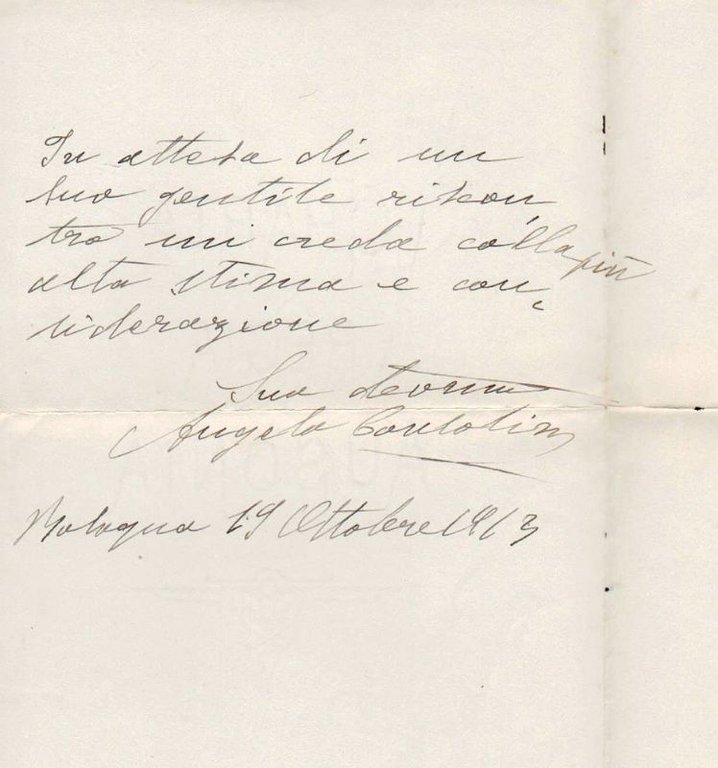 In attesa di un
suo gentile riscon,
tro mi creda colla più
alta stima e con,
siderazione
Suo devmo
Angelo
Bologna 19 Ottobre 1913